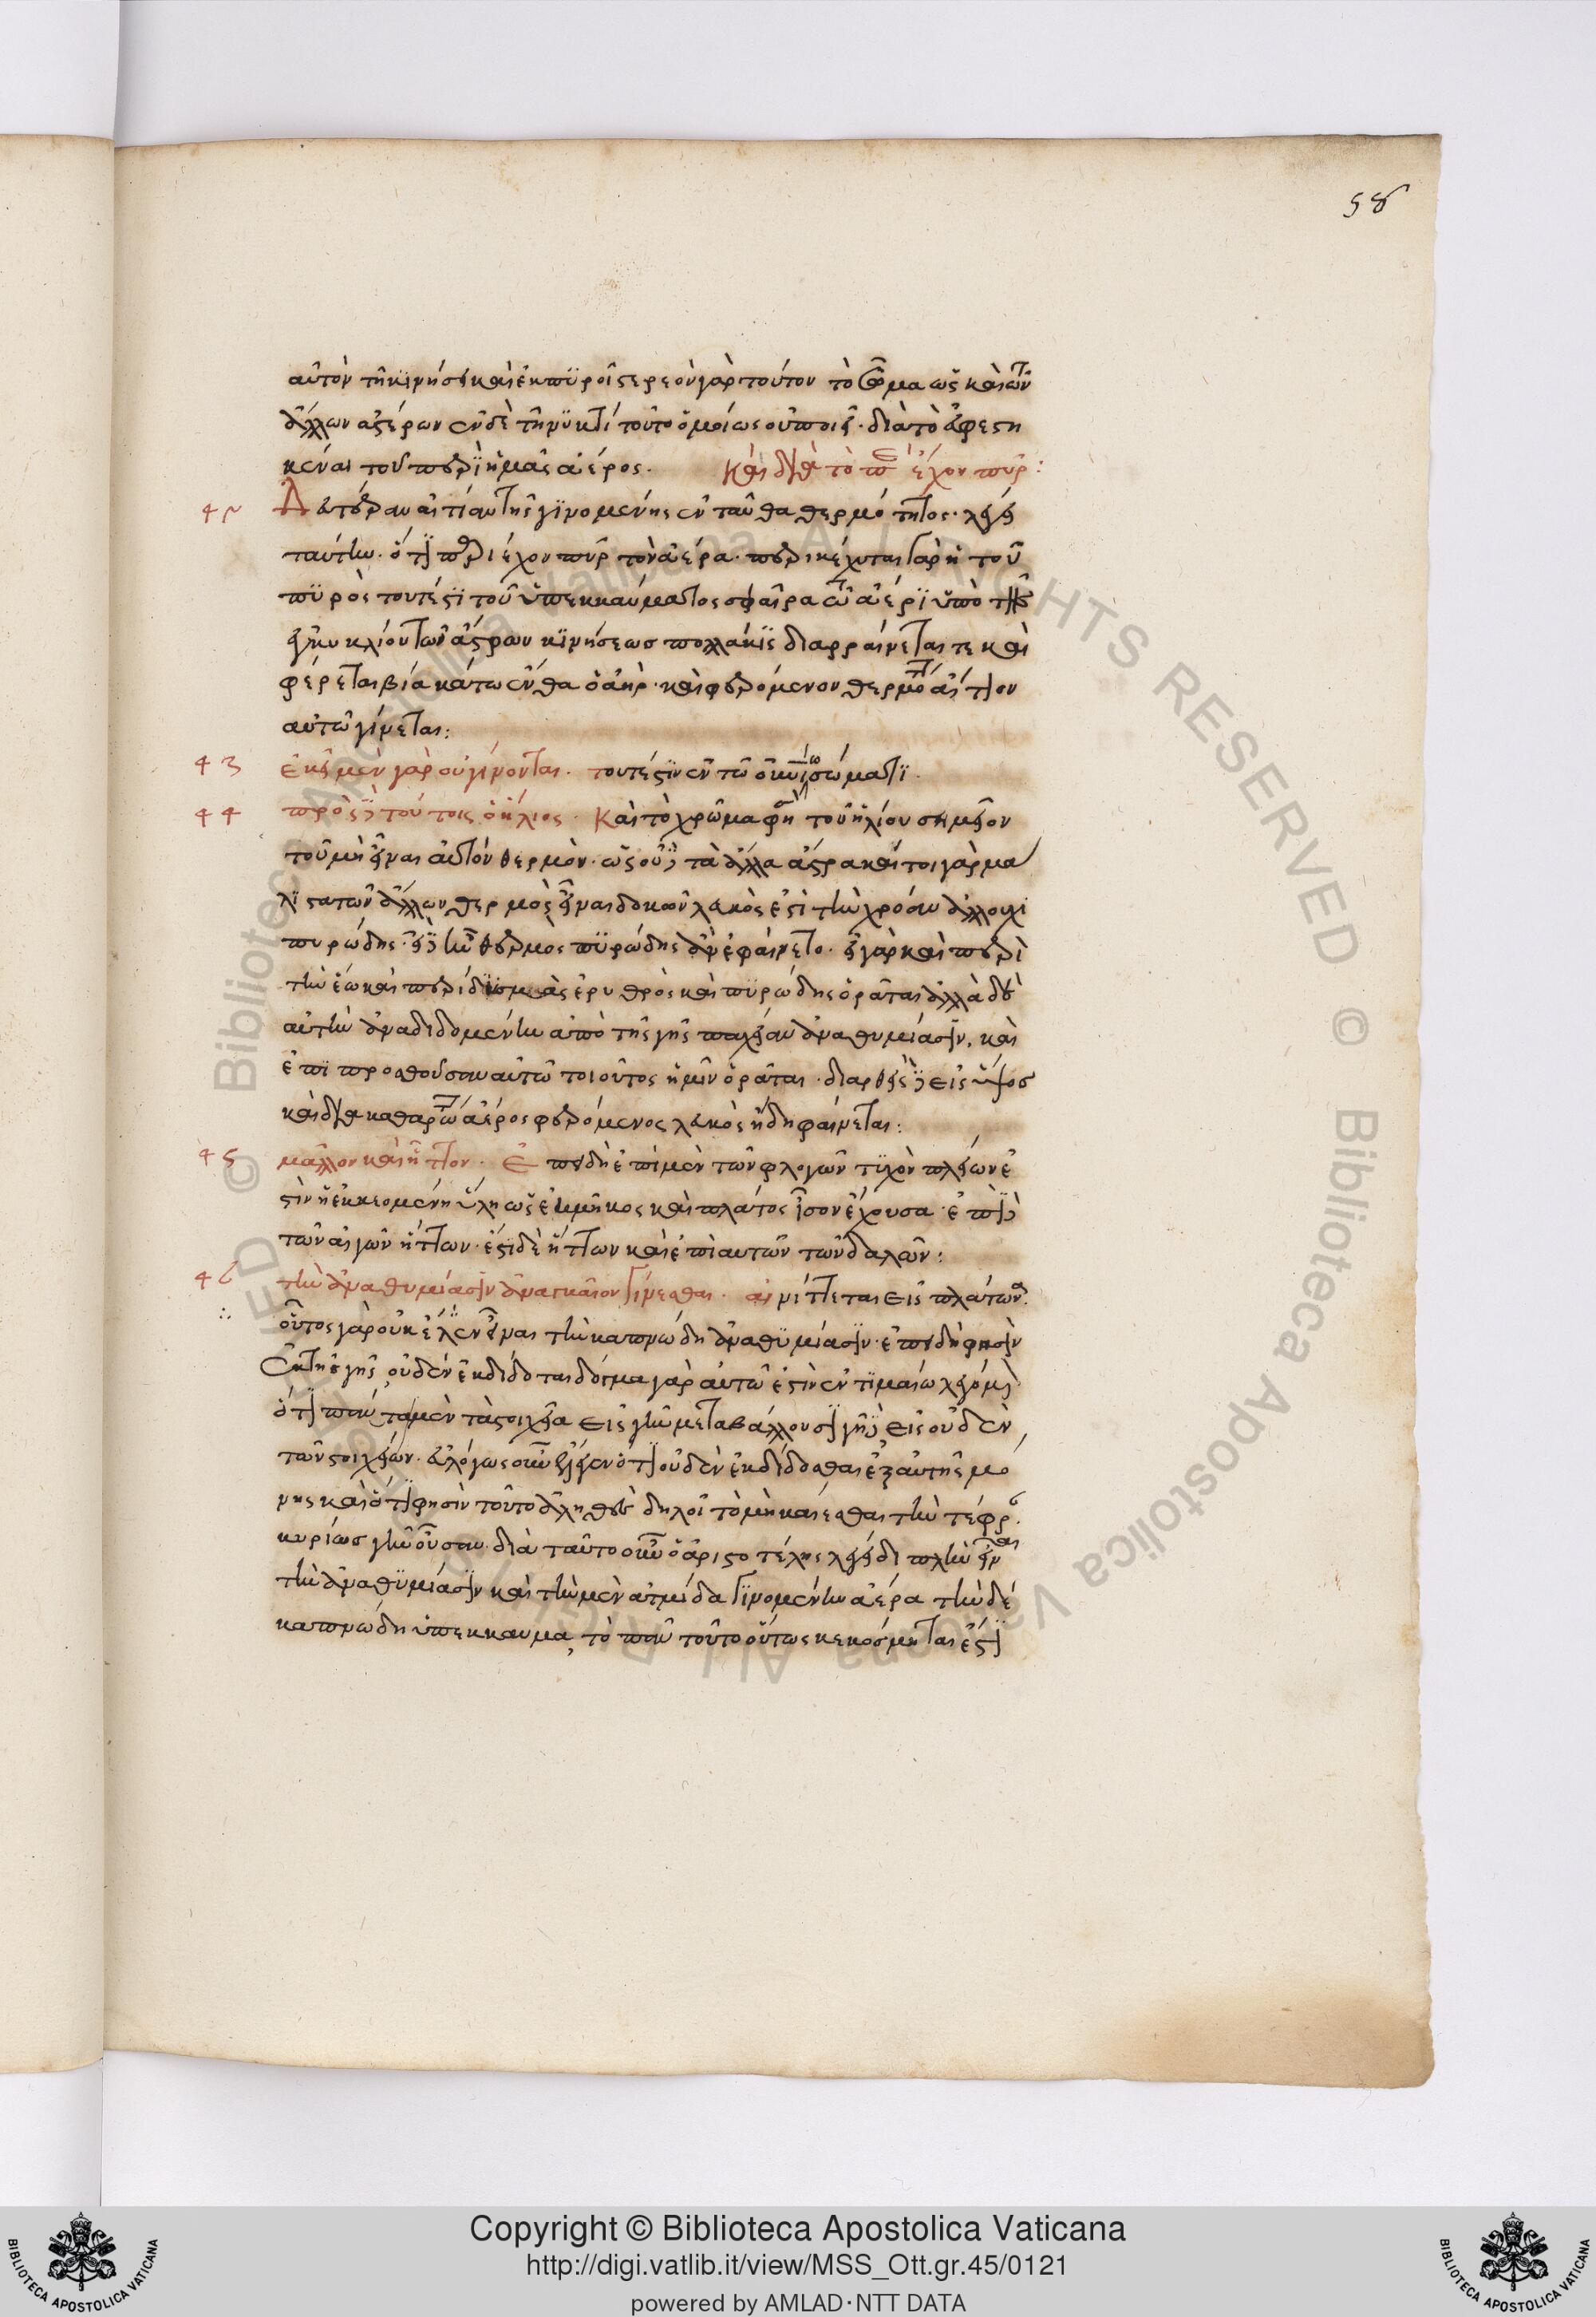 58
αὐτὸν τῇ κινήσει καὶ ἐκπυροῖ στερεὸν γὰρ τούτου τὸ σῶμα ὡς καὶ τῶν
ἄλλων ἀστέρων ἐν δὲ τῇ νυκτὶ τοῦτο ὁμοίως οὐ ποιεῖ· διὰ τὸ ἀφεστη
κέναι τοῦ περὶ ἡμᾶς ἀέρος. Καὶ διὰ τὸ περιέχον πῦρ:
42 Δευτέραν αἰτίαν τῆς γινομένης ἐνταῦθα θερμότητος· λέγει
ταύτην· ὅτι περιέχον πῦρ τὸν ἀέρα· περικέχυται γὰρ ἡ τοῦ
πυρὸς τουτέστι τοῦ ὑπεκκαύματος σφαῖρα τῷ ἀέρι ὑπὸ τῆς
ἐγκυκλίου τῶν ἄστρων κινήσεως πολλάκις διαρραίνεται τε καὶ
φέρεται βίᾳ κάτω ἔνθα ὁ ἀήρ· καὶ φερόμενον θερμότητος αἴτιον
αὐτῷ γίνεται:
43 ἐκεῖ μὲν γὰρ οὐ γίνονται· τουτέστιν ἐν τῷ κυκλίῳ σώματι.
44 πρὸς δὲ τούτοις ὁ ἥλιος· Καὶ τὸ χρῶμα φησὶ τοῦ ἡλίου σημεῖον
τοῦ μὴ εἶναι αὐτὸν θερμόν· ὡς οὐδὲ τὰ ἄλλα ἄστρα καίτοι γὰρ μά
λιστα τῶν ἄλλων θερμὸς εἶναι δοκῶν λευκός ἐστι τὴν χρόαν ἀλλ' οὐχὶ
πυρώδης· εἰ δὲ ἦν θερμὸς πυρώδης ἂν ἐφαίνετο· εἰ γὰρ καὶ περὶ
τὴν ἕω καὶ περὶ δυσμὰς ἐρυθρὸς καὶ πυρώδης ὁρᾶται ἀλλὰ διὰ
αὐτὴν ἀναδιδομένην ἀπὸ τῆς γῆς παχεῖαν ἀναθυμίασιν, καὶ
ἐπιπροσθοῦσαν αὐτῷ τοιοῦτος ἡμῖν ὁρᾶται· διαρθεὶς δὲ εἰς ὕψος
καὶ διὰ καθαρωτέρου ἀέρος φερόμενος λευκὸς ἤδη φαίνεται:
45 μᾶλλον καὶ ἧττον· Ἐπειδὴ ἐπὶ μὲν τῶν φλογῶν τυχὸν πλείων ἐ
στὶν ἡ ἐκκεομένη ὕλη ὡς εἰ μῆκος καὶ πλάτος ἴσον ἔχουσα· ἐπὶ δὲ
τῶν αἰγῶν ἥττων· ἔστι δὲ ἥττων καὶ ἐπὶ αυτῶν τῶν δαλῶν:
46 τὴν ἀναθυμίασιν ἀναγκαῖον γίνεσθαι· αἰνίττεται εἰς πλάτωνα.
οὗτος γὰρ οὐκ ἔλεγεν εἶναι τὴν καπνώδη ἀναθυμίασιν· ἐπειδὴ φησὶν
ἐκ τῆς γῆς οὐδὲν ἐκδίδοται δόγμα γὰρ αὐτῷ ἐστὶν ἐν τιμαίῳ
ὅτι πάντα μὲν τὰ στοιχεῖα εἰς γῆν μεταβάλλουσι γῆ δὲ εἰς οὐδὲν
τῶν στοιχείων· εὐλόγως οὖν ἔλεγεν ὅτι οὐδὲν ἐκδίδοσθαι ἐξ αὐτῆς μό
νης καὶ ὅτι φησὶν τοῦτο ἀληθὲς δηλοῖ τὸ μὴ καίεσθαι τὴν τέφραν
κυρίως γῆν οὖσαν· διὰ ταῦτο οὖν ὁ ἀριστοτέλης λέγει διπλῆν εἶναι
τὴν ἀναθυμίασιν καὶ τὴν μὲν ἀτμίδα γινομένην ἀέρα τὴν δὲ
καπνώδη ὑπέκκαυμα, τὸ πᾶν τοῦτο οὕτως κεκόσμηται ἐστὶ
© Biblioteca Apostolica Vaticana ALL RIGHTS RESERVED © Biblioteca Apostolica Vaticana ALL RIGHTS RESERVED
Copyright © Biblioteca Apostolica Vaticana
http://digi.vatlib.it/view/MSS_Ott.gr.45/0121
powered by AMLAD·NTT DATA
BIBLIOTECA APOSTOLICA VATICANA
BIBLIOTECA APOSTOLICA VATICANA